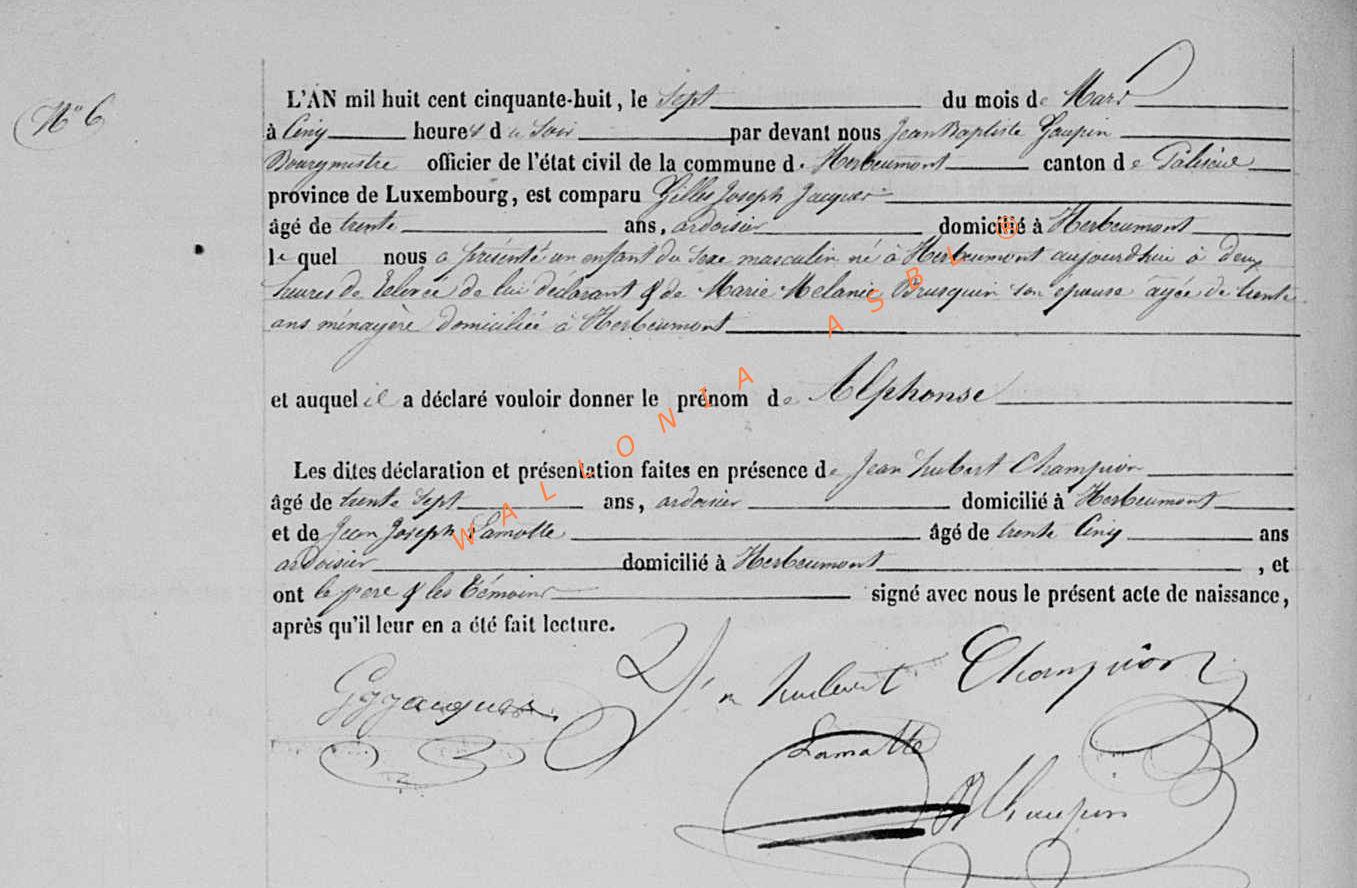 N° 6
L'AN mil huit cent cinquante-huit, le sept du mois de Mars
à Cinq heures du Soir par devant nous Jean Baptiste
Bourgmestre officier de l'état civil de la commune d. Herbeumont canton de Paliseul
province de Luxembourg, est comparu Gilles Joseph Jacques
âgé de trente ans, ardoisier domicilié à Herbeumont
lequel nous a présenté un enfant du sexe masculin né à Herbeumont aujourd'hui à deux
heures de relevée de lui déclarant & de Marie Melanie Brusquin son épouse agée de trente
ans ménagère domiciliée à Herbeumont
et auquel il a déclaré vouloir donner le prénom de Alphonse
Les dites déclaration et présentation faites en présence de Jean hubert Champion
âgé de trente sept ans, ardoisier domicilié à Herbeumont
et de Jean Joseph Lamotte âgé de trente Cinq ans
ardoisier domicilié à Herbeumont, et
ont le père & les témoins signé avec nous le présent acte de naissance,
après qu'il leur en a été fait lecture.
GJJacques
Jn hubert Champion
Lamotte
WALLONIA ASBL ®